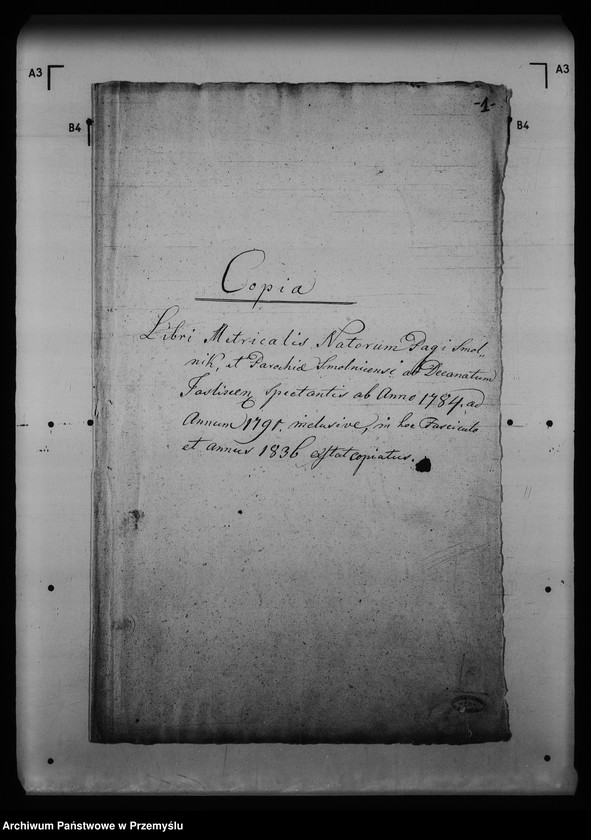 A3
A3
-1-
B4
B4
Copia
Libri Metricalis Natorum Pagi Smol„
nik, et Parochiæ Smolnicensc ad Decanatum
Jasliscen spectantis ab Anno 1784. ad
Annum 1791. inclusive, in hoc Fasciculo
et annus 1836 extat copiatus.
Archiwum Państwowe w Przemyślu